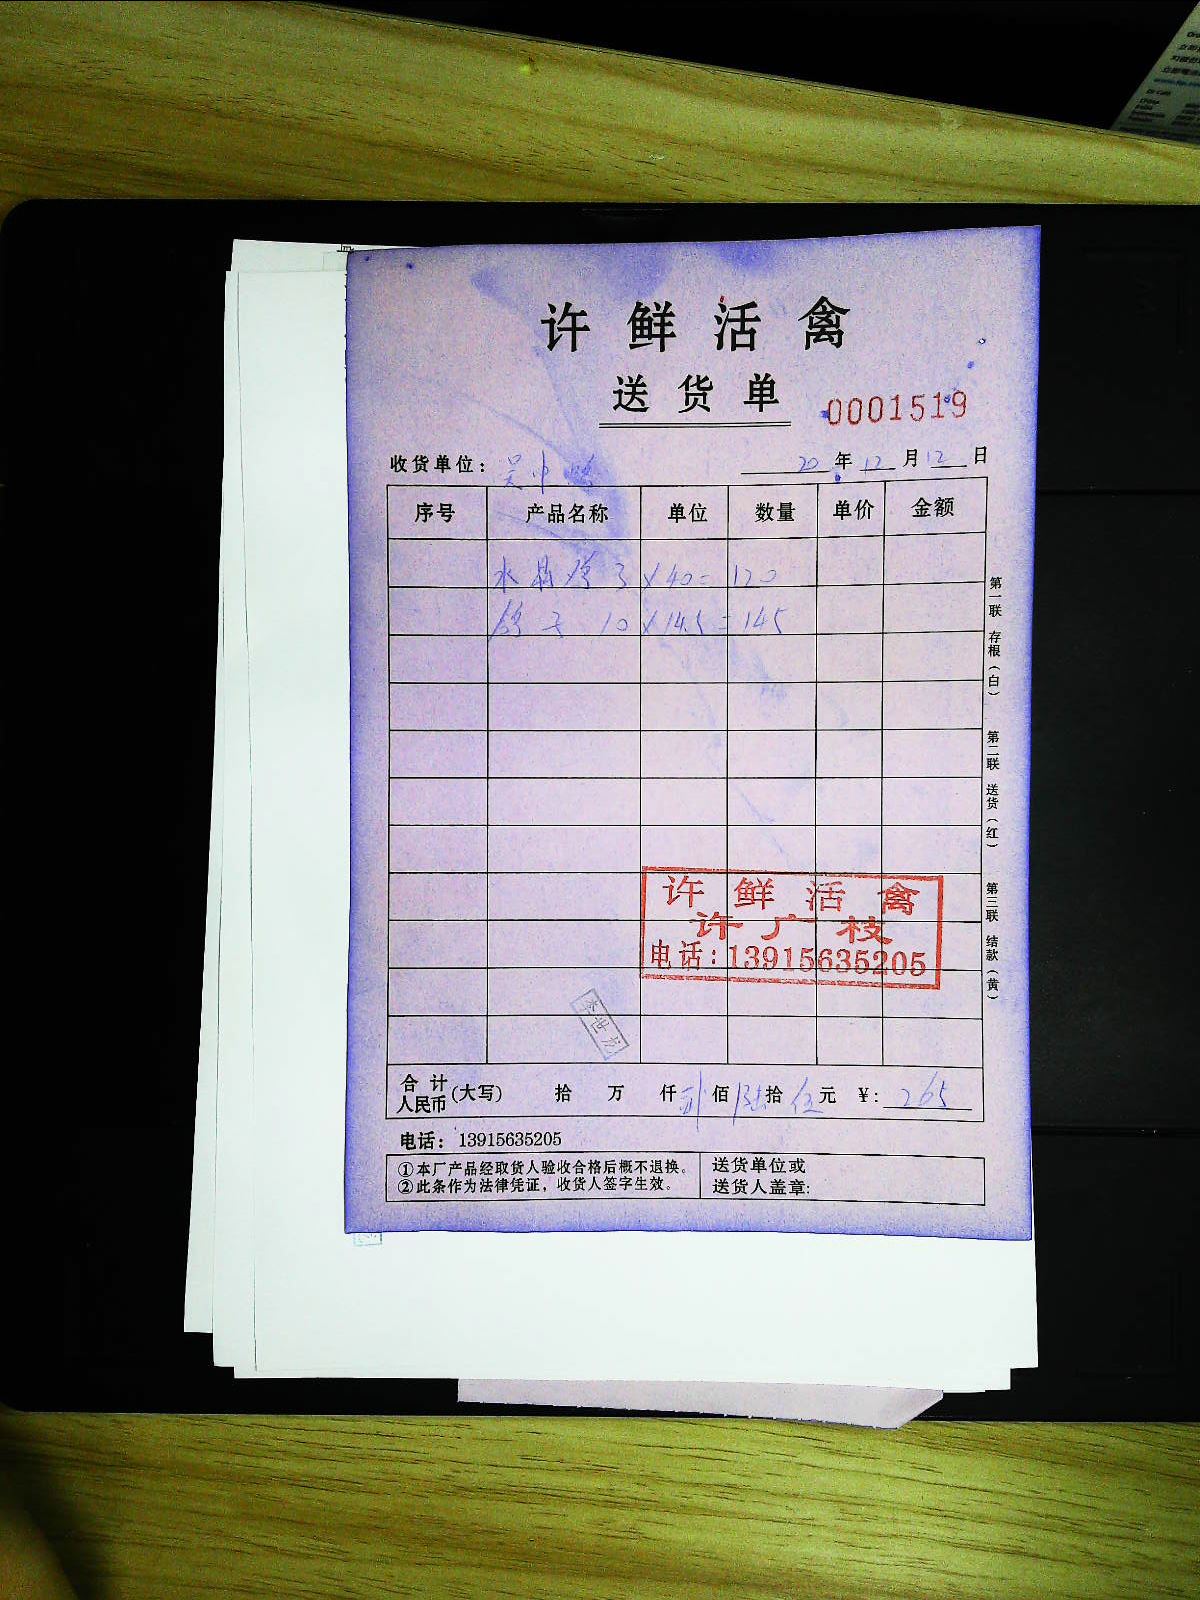 许鲜活禽
送货单
0001519
收货单位： 吴中
20 年 12 月 12 日
序号 产品名称 单位 数量 单价 金额
水晶 3 × 40 = 120
10 × 14.5 = 145
第一联 存根（白）
第二联 送货（红）
第三联 结款（黄）
许鲜活禽
许广枝
电话：13915635205
李世龙
合计人民币（大写） 拾 万 仟 贰 佰 陆 拾 伍 元 ¥: 265
电话：13915635205
①本厂产品经取货人验收合格后概不退换。
②此条作为法律凭证，收货人签字生效。
送货单位或
送货人盖章: